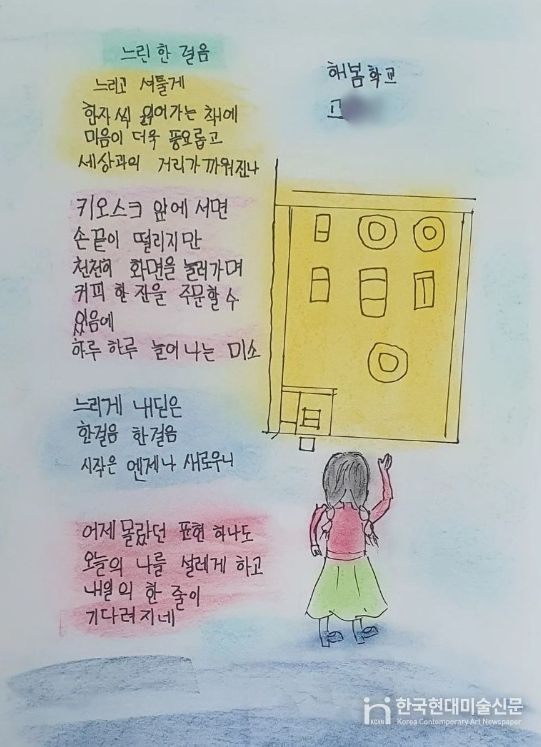 느린 한 걸음
해봄학교
고
느리고 서툴게
한자씩 읽어가는 책에
마음이 더욱 풍요롭고
세상과의 거리가 까워진나
키오스크 앞에 서면
손끝이 떨리지만
천천히 화면을 눌러가며
커피 한 잔을 주문할 수
있음에
하루 하루 늘어 나는 미소
느리게 내딛은
한걸음 한걸음
시작은 언제나 새로우니
어제 몰랐던 표현 하나도
오늘의 나를 설레게 하고
내일의 한 줄이
기다려지네
한국현대미술신문
KCAN Korea Contemporary Art Newspaper